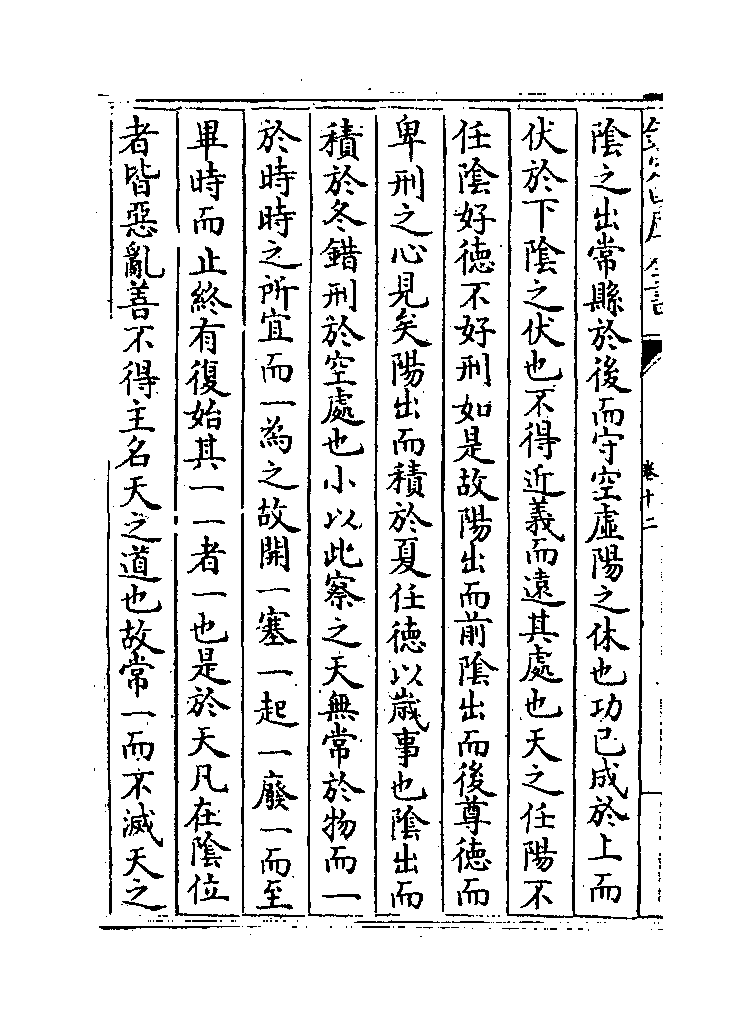 陰之出常縣於後而守空虛陽之休也功已成於上而
伏於下陰之伏也不得近義而遠其處也天之任陽不
任陰好德不好刑如是故陽出而前陰出而後尊德而
卑刑之心見矣陽出而積於夏任德以歲事也陰出而
積於冬錯刑於空處也小以此察之天無常於物而一
於時時之所宜而一為之故開一塞一起一廢一而至
畢時而止終有復始其一一者一也是於天凡在陰位
者皆惡亂善不得主名天之道也故常一而不滅天之
卷十二